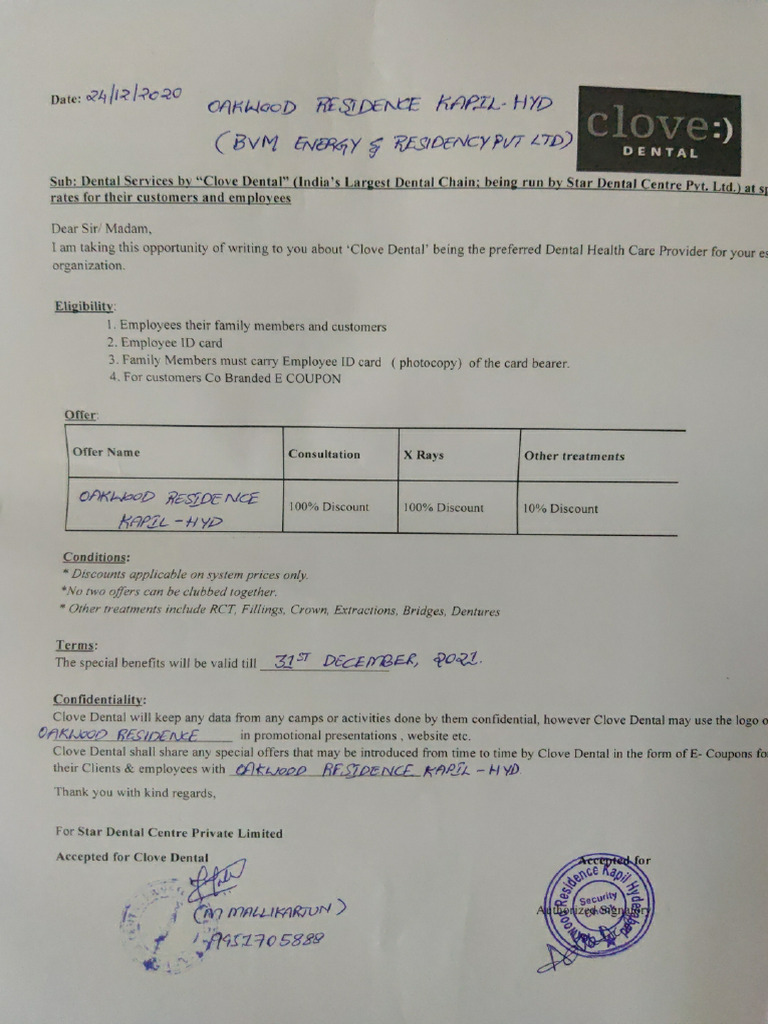 Date: 24/12/2020
OAKWOOD RESIDENCE KAPIL-HYD
(BVM ENERGY & RESIDENCY PVT LTD)
clove:)
DENTAL
Sub: Dental Services by "Clove Dental" (India's Largest Dental Chain; being run by Star Dental Centre Pvt. Ltd.) at sp
rates for their customers and employees
Dear Sir/ Madam,
I am taking this opportunity of writing to you about 'Clove Dental' being the preferred Dental Health Care Provider for your es
organization.
Eligibility:
1. Employees their family members and customers
2. Employee ID card
3. Family Members must carry Employee ID card ( photocopy) of the card bearer.
4. For customers Co Branded E COUPON
Offer:
Offer Name Consultation X Rays Other treatments
OAKWOOD RESIDENCE
KAPIL-HYD
100% Discount 100% Discount 10% Discount
Conditions:
* Discounts applicable on system prices only.
*No two offers can be clubbed together.
* Other treatments include RCT, Fillings, Crown, Extractions, Bridges, Dentures
Terms:
The special benefits will be valid till 31ST DECEMBER, 2021.
Confidentiality:
Clove Dental will keep any data from any camps or activities done by them confidential, however Clove Dental may use the logo o
OAKWOOD RESIDENCE in promotional presentations , website etc.
Clove Dental shall share any special offers that may be introduced from time to time by Clove Dental in the form of E- Coupons fo
their Clients & employees with OAKWOOD RESIDENCE KAPIL-HYD
Thank you with kind regards,
For Star Dental Centre Private Limited
Accepted for Clove Dental
Accepted for
(M MALLIKARJUN)
9951705888
Authorized Signatory
Oakwood Residence Kapil Hyderabad
Security